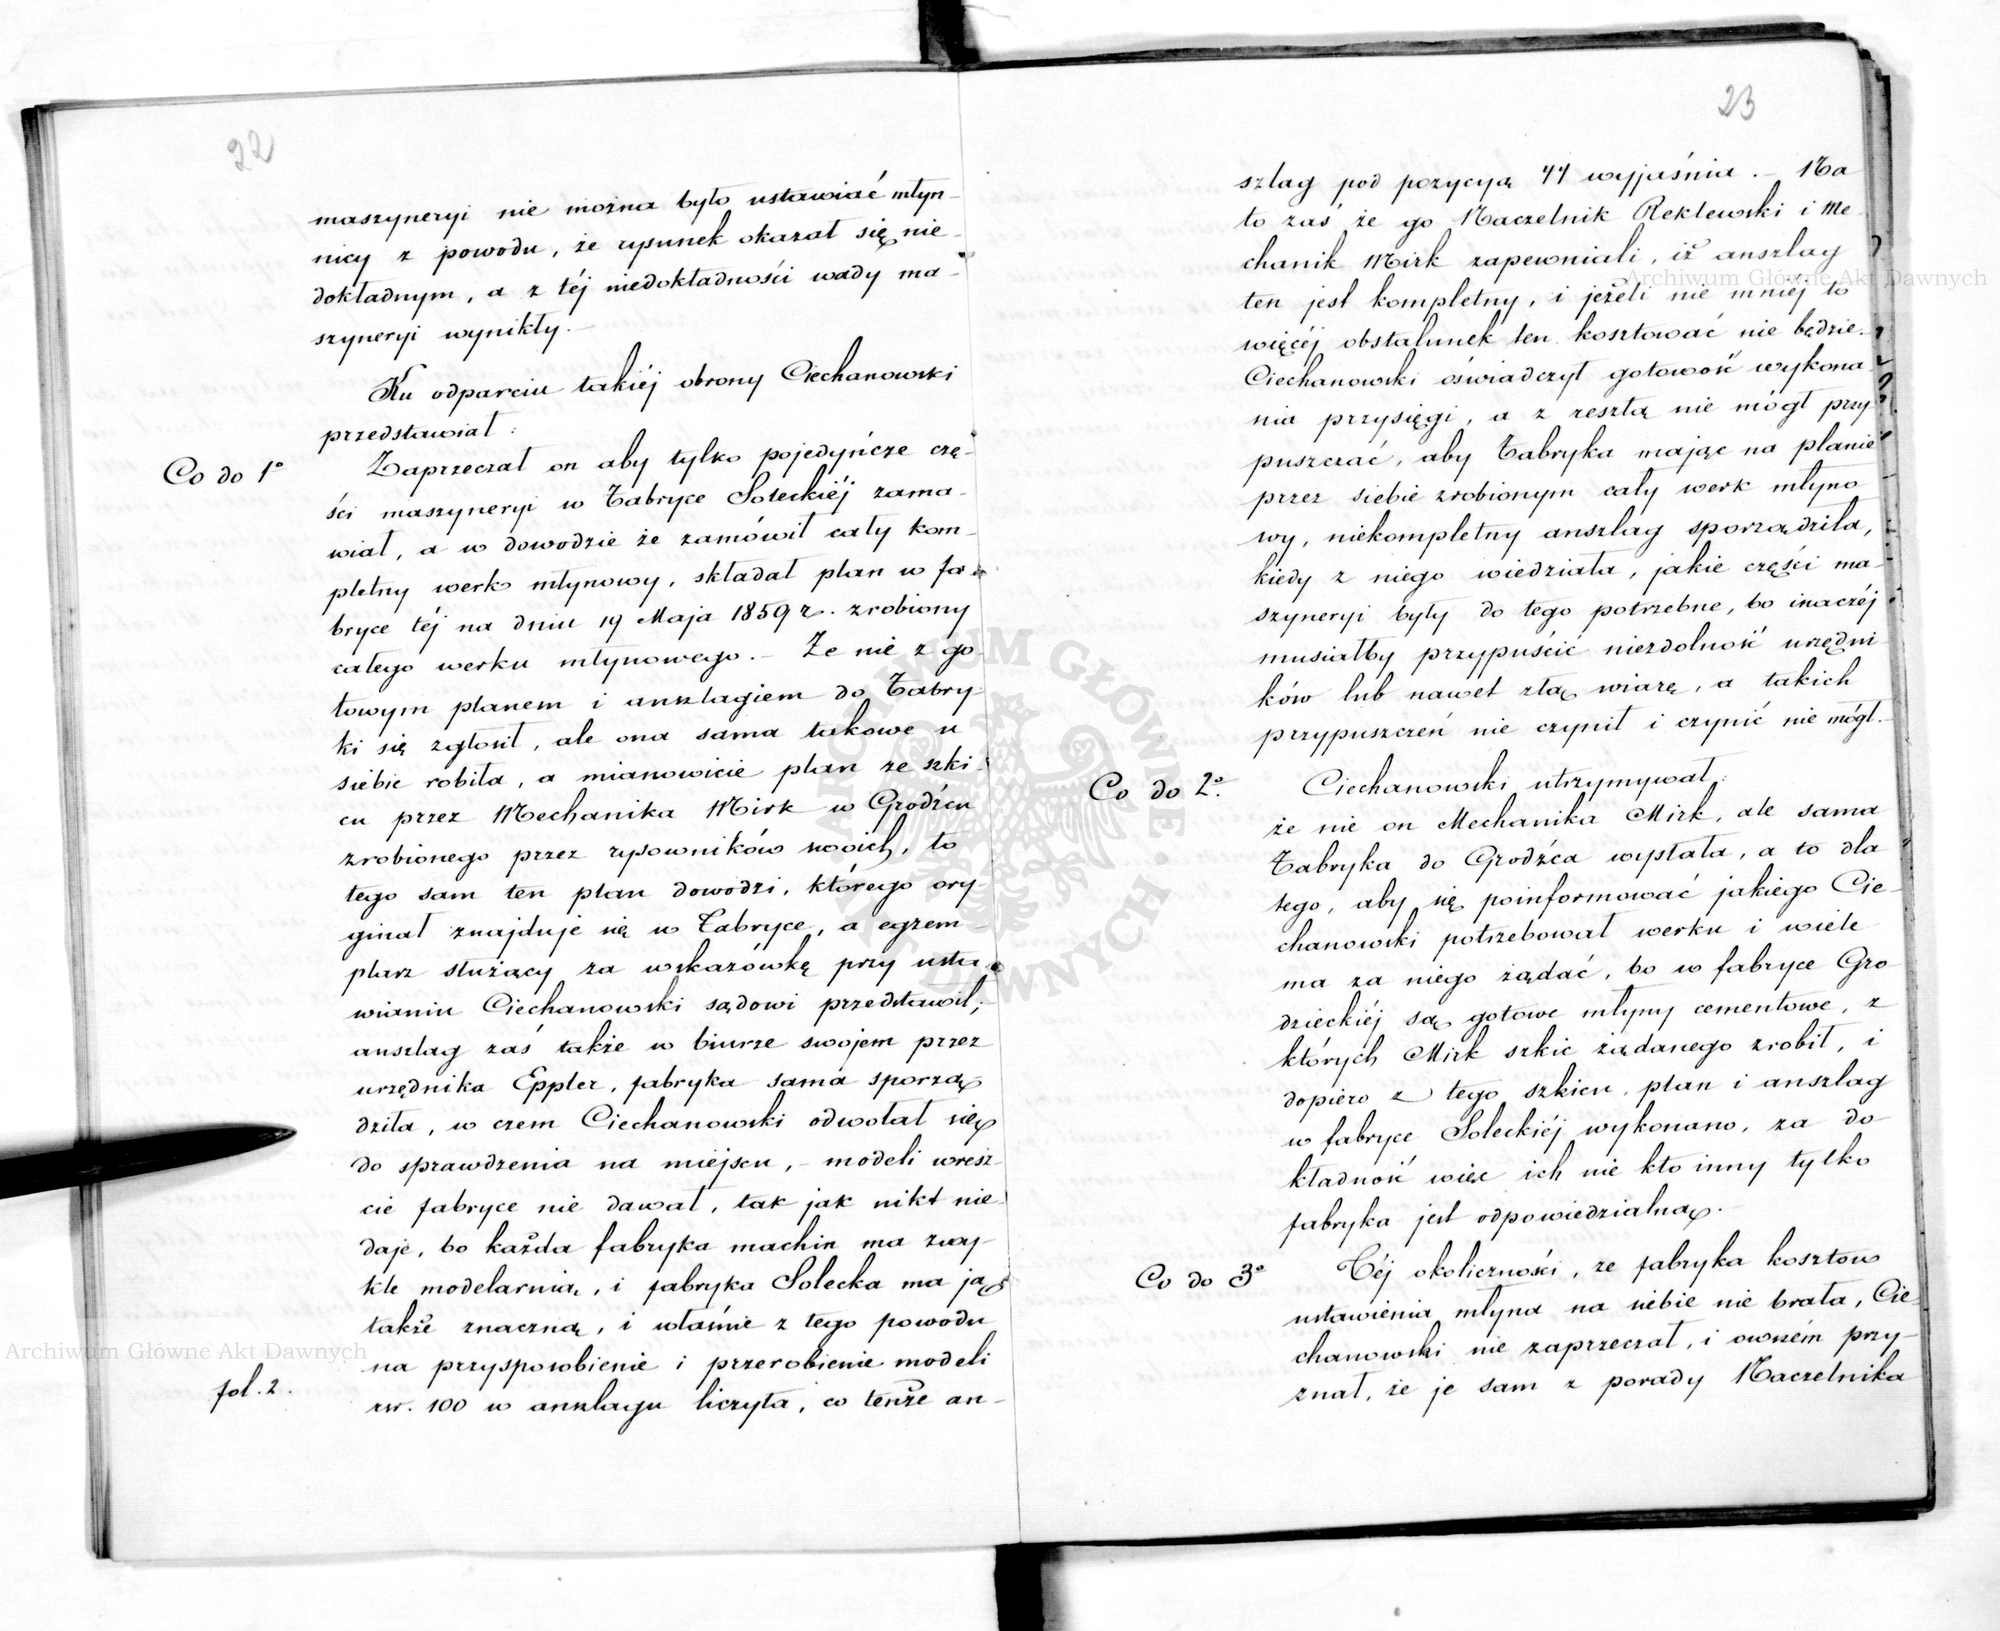 22
maszyneryi nie można było ustawiać młyn-
nicy z powodu, że rysunek okazał się nie-
dokładnym, a z téj niedokładności wady ma-
szyneryi wynikły.-
Ku odparciu takiéj obrony Ciechanowski
przedstawiał:
Co do 1°
Zaprzeczał on aby tylko pojedyńcze czę-
ści maszyneryi w Fabryce Soleckiéj zama-
wiał, a w dowodzie że zamówił cały kom-
pletny werk młynowy, składał plan w fa-
bryce téj na dniu 19 Maja 1859 r. zrobiony
całego werku młynowego.- Że nie z go-
towym planem i anszlagiem do Fabry-
ki się zgłosił, ale ona sama takowe u
siebie robiła, a mianowicie plan ze szki-
cu przez Mechanika Mirk w Grodźcu
zrobionego przez rysowników swoich, to
tego sam ten plan dowodzi, którego ory-
ginał znajduje się w Fabryce, a egzem-
plarz służący za wskazówkę przy usta-
wianiu Ciechanowski sądowi przedstawił;
anszlag zaś także w biurze swojem przez
urzędnika Eppler, fabryka sama sporzą-
dziła, w czem Ciechanowski odwołał się
do sprawdzenia na miejscu,- modeli wresz-
cie fabryce nie dawał, tak jak nikt nie
daje, bo każda fabryka machin ma zwy-
kle modelarnią, i fabryka Solecka ma ją
także znaczną, i właśnie z tego powodu
na przysposobienie i przerobienie modeli
fol. 2.
rsr. 100 w anszlagu liczyła, co tenże an-
23
szlag pod pozycyą 44 wyjaśnia.- Na
to zaś że go Naczelnik Reklewski i Me-
chanik Mirk zapewniali, iż anszlag
ten jest kompletny, i jeżeli nie mniéj to
więcéj obstalunek ten kosztować nie będzie.
Ciechanowski oświadczył gotowość wykona-
nia przysięgi, a z resztą nie mógł przy
puszczać, aby Fabryka mając na planie
przez siebie zrobionym cały werk młyno
wy, niekompletny anszlag sporządziła,
kiedy z niego wiedziała, jakie części ma-
szyneryi były do tego potrzebne, bo inaczéj
musiałby przypuścić niezdolność urzędni
ków lub nawet złą wiarę, a takich
przypuszczeń nie czynił i czynić nie mógł.-
Co do 2°.
Ciechanowski utrzymywał:
że nie on Mechanika Mirk, ale sama
Fabryka do Grodźca wysłała, a to dla
tego, aby się poinformować jakiego Cie-
chanowski potrzebował werku i wiele
ma za niego żądać, bo w fabryce Gro
dzieckiéj są gotowe młyny cementowe, z
których Mirk szkic żądanego zrobił, i
dopiero z tego szkicu, plan i anszlag
w fabryce Soleckiéj wykonano, za do-
kładność więc ich nie kto inny tylko
fabryka jest odpowiedzialną.-
Co do 3°
Téj okoliczności, że fabryka kosztów
ustawienia młyna na siebie nie brała, Cie-
chanowski nie zaprzeczał, i owszem przy-
znał, że je sam z porady Naczelnika
Archiwum Główne Akt Dawnych
Archiwum Główne Akt Dawnych
ARCHIWUM GŁÓWNE · AKT DAWNYCH ·